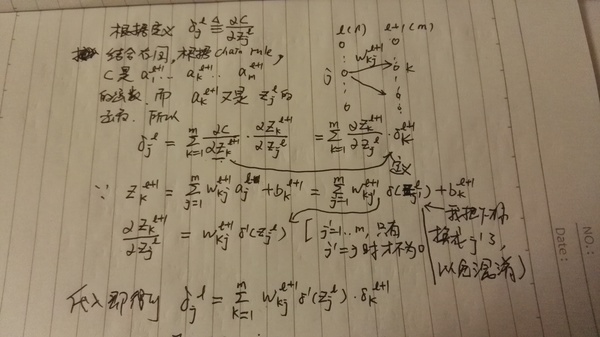 根据定义 δ_j^l ≜ ∂C/∂z_j^l
结合右图, 根据chain rule,
C是 a_1^{l+1} ... a_k^{l+1} ... a_m^{l+1}
的函数, 而 a_k^{l+1} 又是 z_j^l 的
函数. 所以
l(n) l+1(m)
w_{kj}^{l+1}
j k
δ_j^l = Σ_{k=1}^m ∂C/∂z_k^{l+1} · ∂z_k^{l+1}/∂z_j^l = Σ_{k=1}^m ∂z_k^{l+1}/∂z_j^l · δ_k^{l+1}
定义
∵ z_k^{l+1} = Σ_{j=1}^m w_{kj}^{l+1} a_j^l + b_k^{l+1} = Σ_{j'=1}^m w_{kj'}^{l+1} δ(z_{j'}^l) + b_k^{l+1}
∂z_k^{l+1}/∂z_j^l = w_{kj}^{l+1} δ'(z_j^l) [ j'=1..m, 只有
j'=j时才不为0
我把下标
换成j'了,
以免混淆)
代入即得 δ_j^l = Σ_{k=1}^m w_{kj}^{l+1} δ'(z_j^l) · δ_k^{l+1}
NO.:
Date: